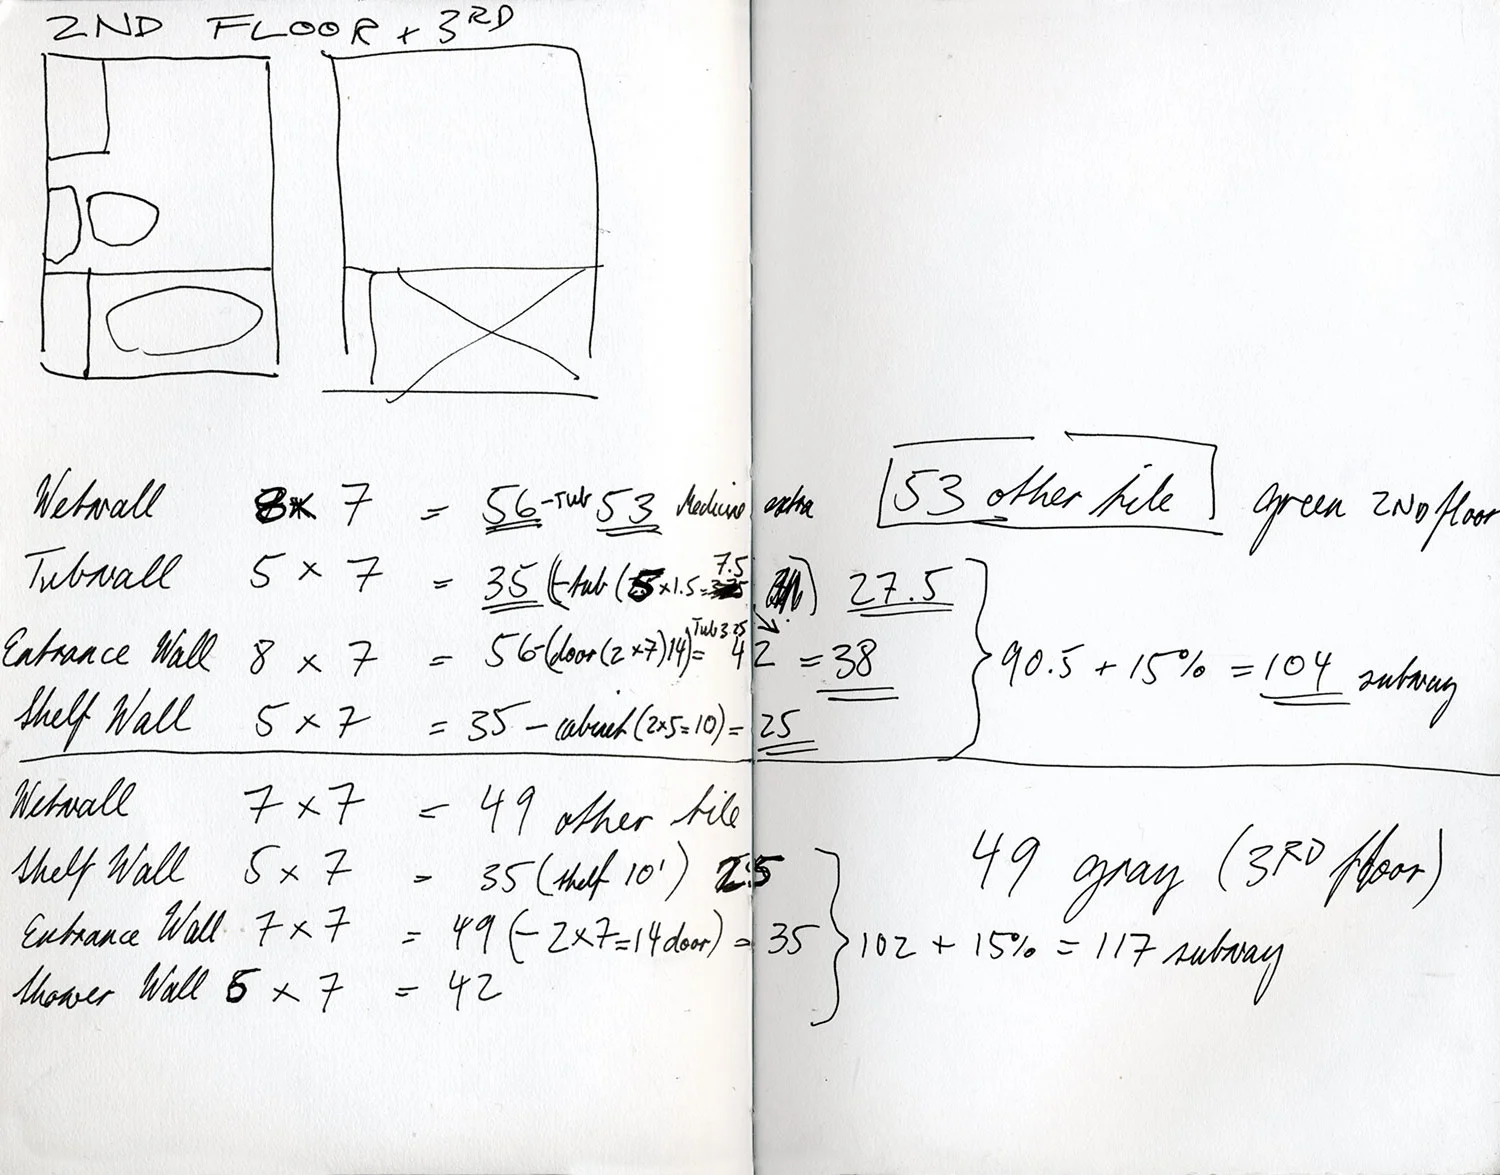 2ND FLOOR + 3RD
Wetwall 8 x 7 = 56 - Tub 53 Medicine extra 53 other tile green 2ND floor
Tubwall 5 x 7 = 35 (- tub (5 x 1.5 = 7.5) 27.5
Entrance Wall 8 x 7 = 56 - (door (2 x 7) 14) = 42 Tub 3.25 = 38 90.5 + 15% = 104 subway
Shelf Wall 5 x 7 = 35 - cabinet (2x5=10) = 25
Wetwall 7 x 7 = 49 other tile 49 gray (3RD floor)
Shelf Wall 5 x 7 = 35 (shelf 10') 25
Entrance Wall 7 x 7 = 49 (- 2 x 7 = 14 door) = 35 102 + 15% = 117 subway
Shower Wall 6 x 7 = 42